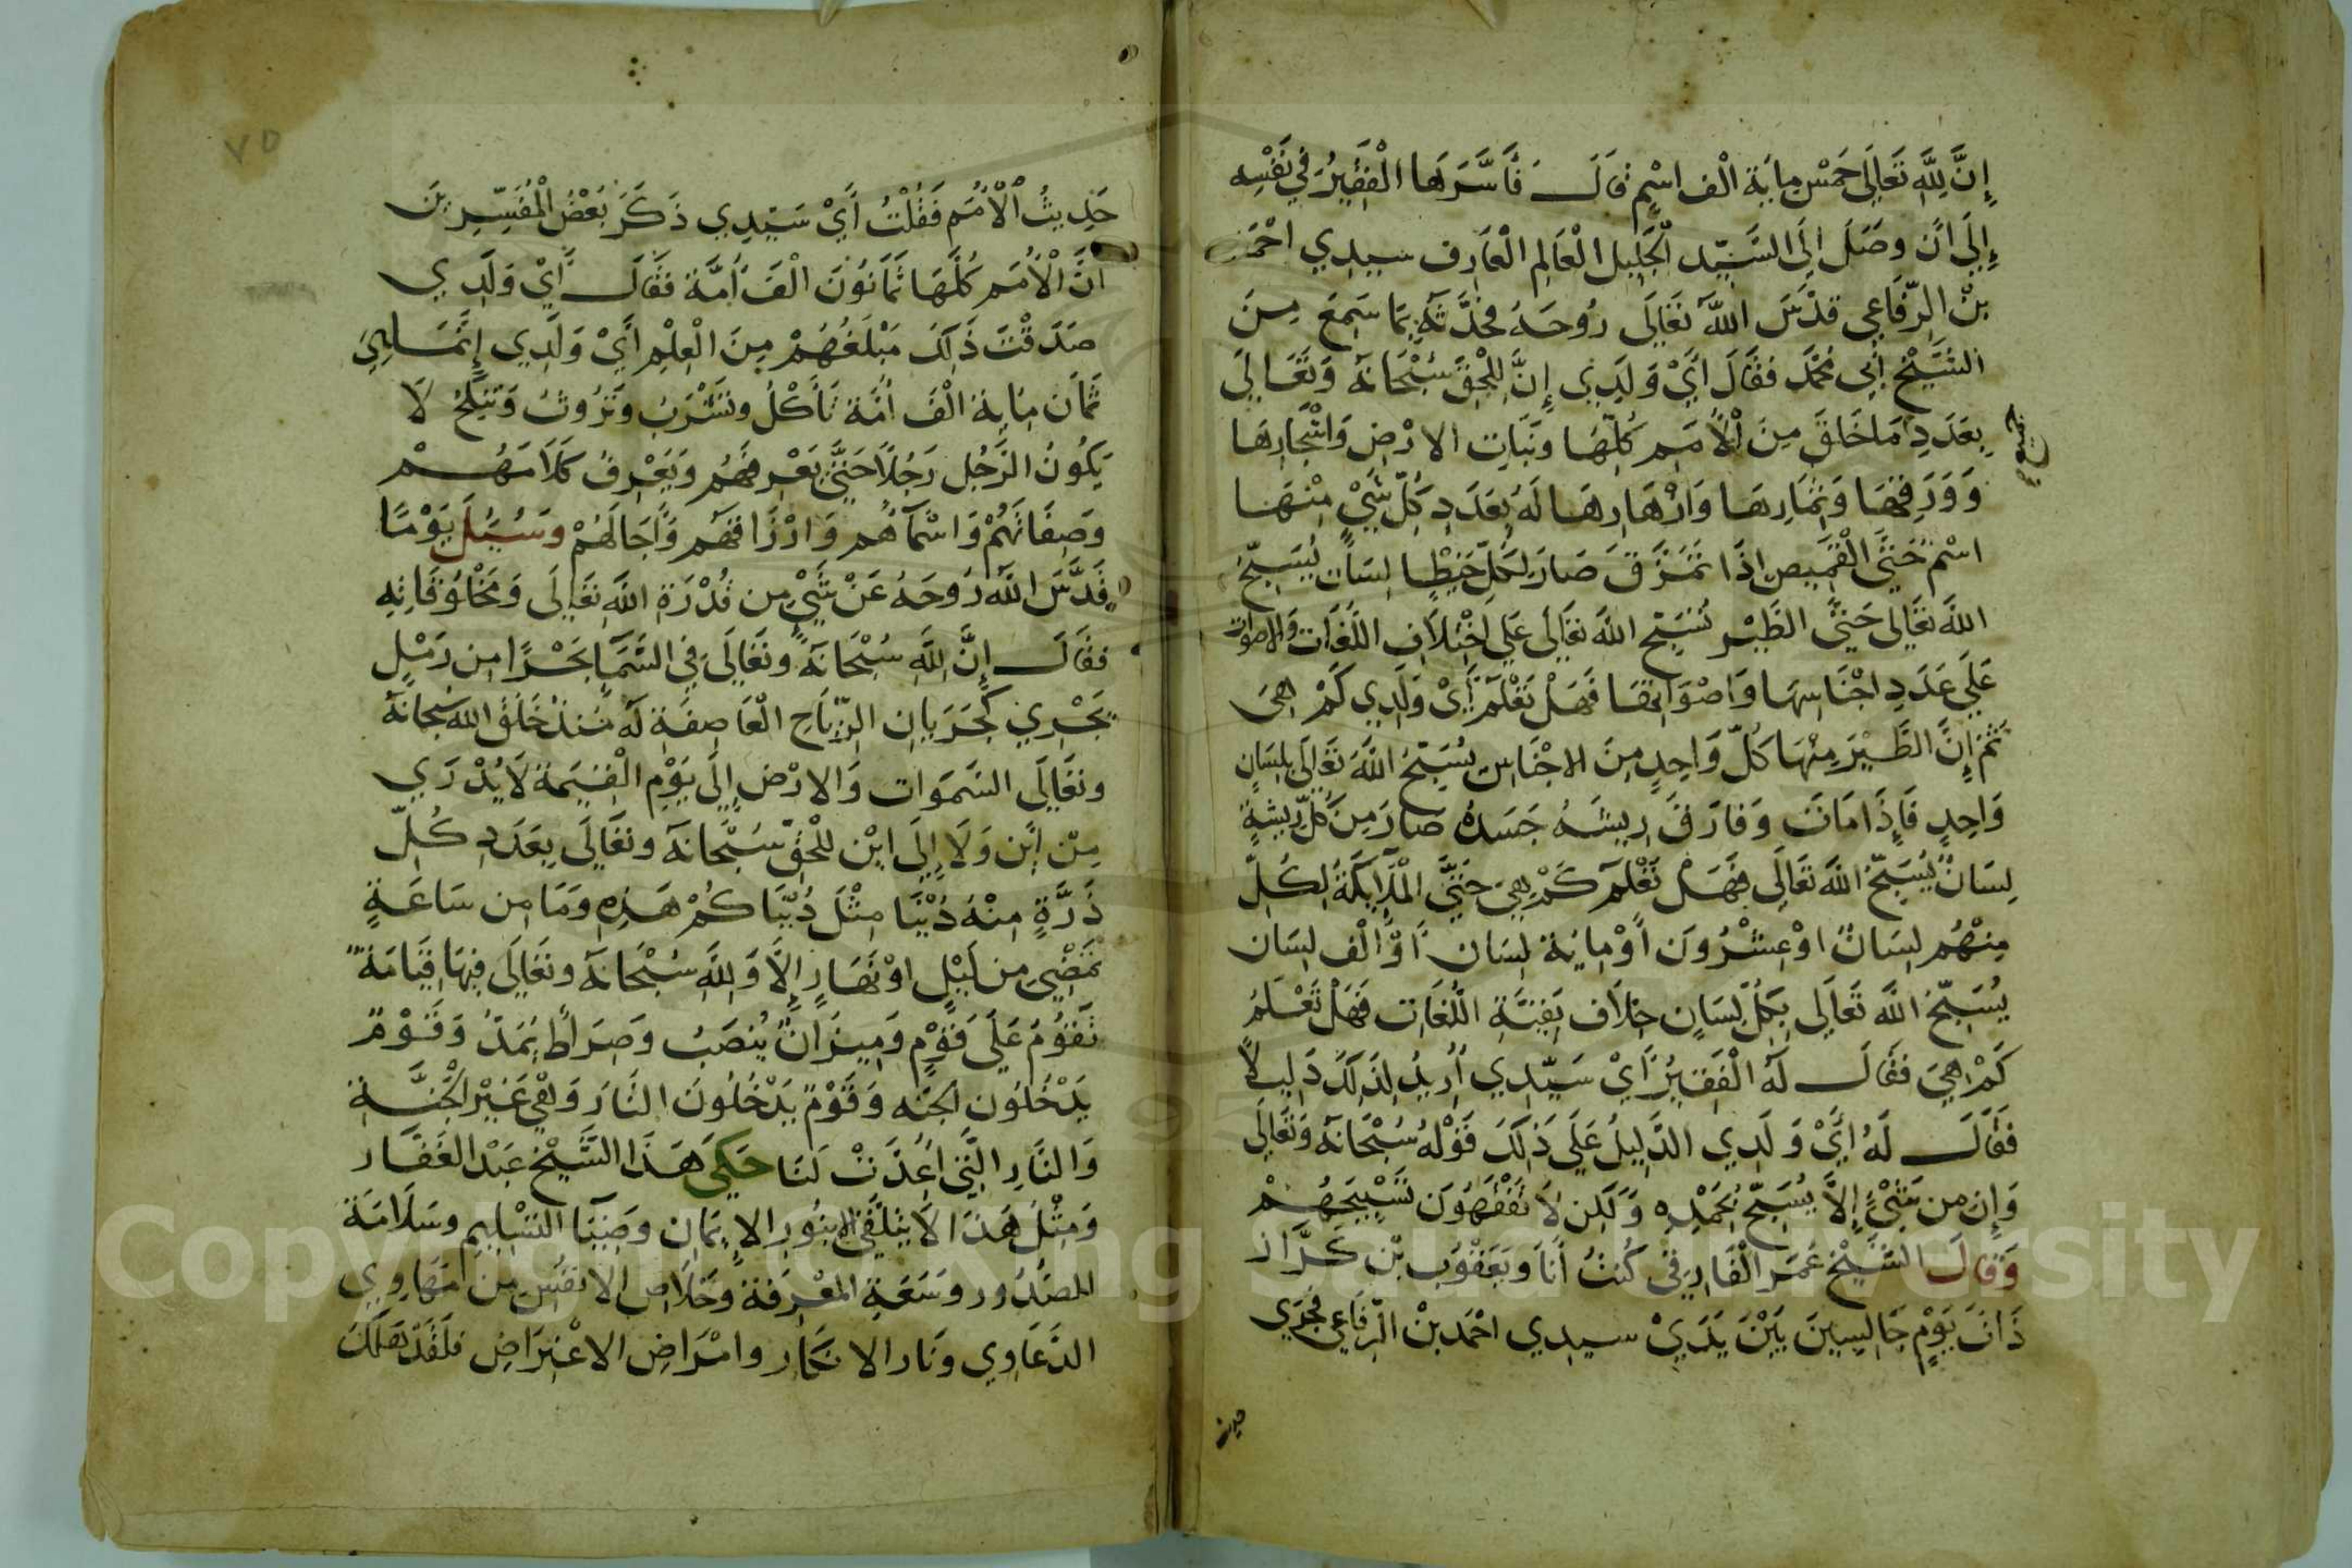 إِنَّ لِلَّهِ تَعَالَى خَمْسَ مِايَة الْف اسْمٍ قَالَ فَأَسَّرَهَا الْفَقِيرُ فِي نَفْسِه
إِلَى انَ وصَلَ الَى السَّيِّد الْجَلِيل الْعَالِم الْعَارِف سيدِي احْمَد
بنْ الرِّفَاعِي قدَّسَ اللَّه تَعَالَى رُوحَهُ فحَدَّثَهُ بِمَا سَمِعَ مِنَ
الشَّيْخ أَبِي مُحَمَّد فقَالَ أَيْ وَلَدِي إِنَّ لِلْحَقِّ سُبْحَانَهُ وَتَعَالَى
بِعَدَدِ مَا خَلَقَ مِنَ الْأُمَمِ كُلِّهَا ونَبَات الارْضِ وَاشْجَارِهَا
وَوَرَقِهَا وَثِمَارِهَا وَازْهَارِهَا لَهُ بِعَدَدِ كُلِّ شَيْءٍ مِنْهَا
اسْمٌ حَتَّى الْقَمِيص إِذَا تَمَزَّقَ صَارَ لِكُلِّ خَيْطٍ لِسَان يُسَبِّحُ
اللَّه تَعَالَى حَتَّى الطَّيْر تُسَبِّح اللَّه تعَالَى عَلَى اخْتِلَاف اللُّغَات وَالاصوات
عَلَى عَدَدِ اجْنَاسِهَا وَاصْوَاتِهَا فَهَلْ تَعْلَمُ أَيْ وَلَدِي كَمْ هِيَ
ثُمَّ إِنَّ الطَّيْرَ مِنْهَا كُلّ وَاحِدٍ مِنَ الاجْنَاس يُسَبِّحُ اللَّهَ تَعَالَى بلِسَانٍ
وَاحِدٍ فَإِذَا مَاتَ وَفَارَقَ رِيشَهُ جَسَدُهُ صَارَ مِنْ كُلِّ رِيشَةٍ
لِسَانٌ يُسَبِّحُ اللَّه تَعَالَى فهَلْ تَعْلَم كَمْ هِيَ حَتَّى الْمَلَايِكَةُ لِكُلِّ
مِنْهُم لِسَانٌ اوْ عِشْرُونَ أَوْ مِايَة لِسَان أَوْ أَلْف لِسَان
يُسَبِّحُ اللَّه تَعَالَى بِكُلِّ لِسَانٍ خِلَاف بَقِيَّةِ اللُّغَات فَهَلْ تَعْلَمُ
كَمْ هِيَ فَقَالَ لَهُ الْفَقِيرُ أَيْ سَيِّدِي أُرِيدُ لِذَلِكَ دَلِيلًا
فَقَالَ لَهُ أَيْ وَلَدِي الدَّلِيلُ عَلَى ذَلِكَ قَوْلهُ سُبْحَانَهُ وَتَعَالَى
وَإِن من شَيْءٍ إِلَّا يُسَبِّحُ بِحَمْدِه وَلَكِن لَا تَفْقَهُونَ تَسْبِيحَهُمْ
وَقَالَ الشَّيْخ عُمَر الْفَارِقِي كُنْتُ أَنَا وَيَعْقُوب بْن كَرَّاز
ذَاتَ يَوْمٍ جَالِسِينَ بَيْنَ يَدَيْ سيدِي احْمَد بنْ الرِّفَاعِي فجَرَى
حديث
حَدِيثُ الْأُمَم فَقُلْتُ أَيْ سَيِّدِي ذَكَرَ بَعْضُ الْمُفَسِّرِين
انَّ الْأُمَم كُلَّهَا ثَمَانُونَ الْفَ أُمَّة فَقَالَ أَيْ وَلَدِي
صَدَقْتَ ذَلِكَ مَبْلَغُهُمْ مِنَ الْعِلْمِ أَيْ وَلَدِي
ثَمَان مِاية الْفَ أُمَّة تَأْكُلُ وتَشْرَبُ وتَرُوثُ وَتَنْكِحُ لَا
يَكُونُ الرَّجُل رَجُلًا حَتَّى يَعْرِفهُم وَيَعْرِفُ كَلَامَهُمْ
وَصِفَاتَهُمْ وَاسْمَآهُم وَارْزَاقهُم وَآجَالَهُمْ وَسُيِلَ يَوْمًا
قَدَّسَ اللَّه رُوحَهُ عَنْ شَيْءٍ مِن قُدْرَة اللَّه تَعَالَى وَمَخْلُوقَاتِهِ
فقَالَ إِنَّ لِلَّهِ سُبْحَانَهُ وتَعَالَى فِي السَّمَا بَحْرًا مِن رَمْلٍ
يَجْرِي كَجَرَيَان الرِّيَاحِ الْعَاصِفَة لَهُ مُنْذُ خَلَقَ اللَّه سبحَانَهُ
وتعَالَى السَمَوَات وَالارْض إِلَى يَوْمِ الْقِيَمة لَا يُدْرَي
مِنْ اين وَلَا إِلَى ايْن لِلْحَقِّ سُبْحَانَهُ وتَعَالَى بِعَدَدِ كُلِّ
ذَرَّةٍ مِنْهُ دُنْيَا مِثْلَ دُنْيَاكُمْ هَذِهِ وَمَا مِن سَاعَةٍ
تَمْضِي مِن لَيْلٍ اوْ نَهَارٍ إِلَّا وَلِلَّهِ سُبْحَانَهُ وتَعَالَى فِيهَا قِيَامَةٌ
تَقُومُ عَلَى قَوْمٍ وَمِيزَانٌ يُنْصَبُ وَصِرَاطٌ يُمَدُّ وَقَوْمٌ
يَدْخُلُون الجنّه وَقَوْمٌ يَدْخُلُونَ النَّارَ وَهِيَ غَيْر الْجَنَّةِ
وَالنَّارِ الَّتِي أُعِدَّتْ لَنَا حَكَى هَذَا الشَّيْخ عَبْد الغَفَّار
وَمِثْلُ هَذَا لَا يُتَلَقَّى إلا بِنُورِ الإِيمَان وَضِيَا التسْلِيم وسَلَامَة
الصُدُور وَسَعَةِ المعْرِفَة وخَلَاص الانْفُس مِن مَهَاوِي
الدَعَاوِي وَنَار الانكَار وامْرَاض الاعْتِرَاض فلَقَدْ هَلَكَ
٧٥
Copyright © King Saud University